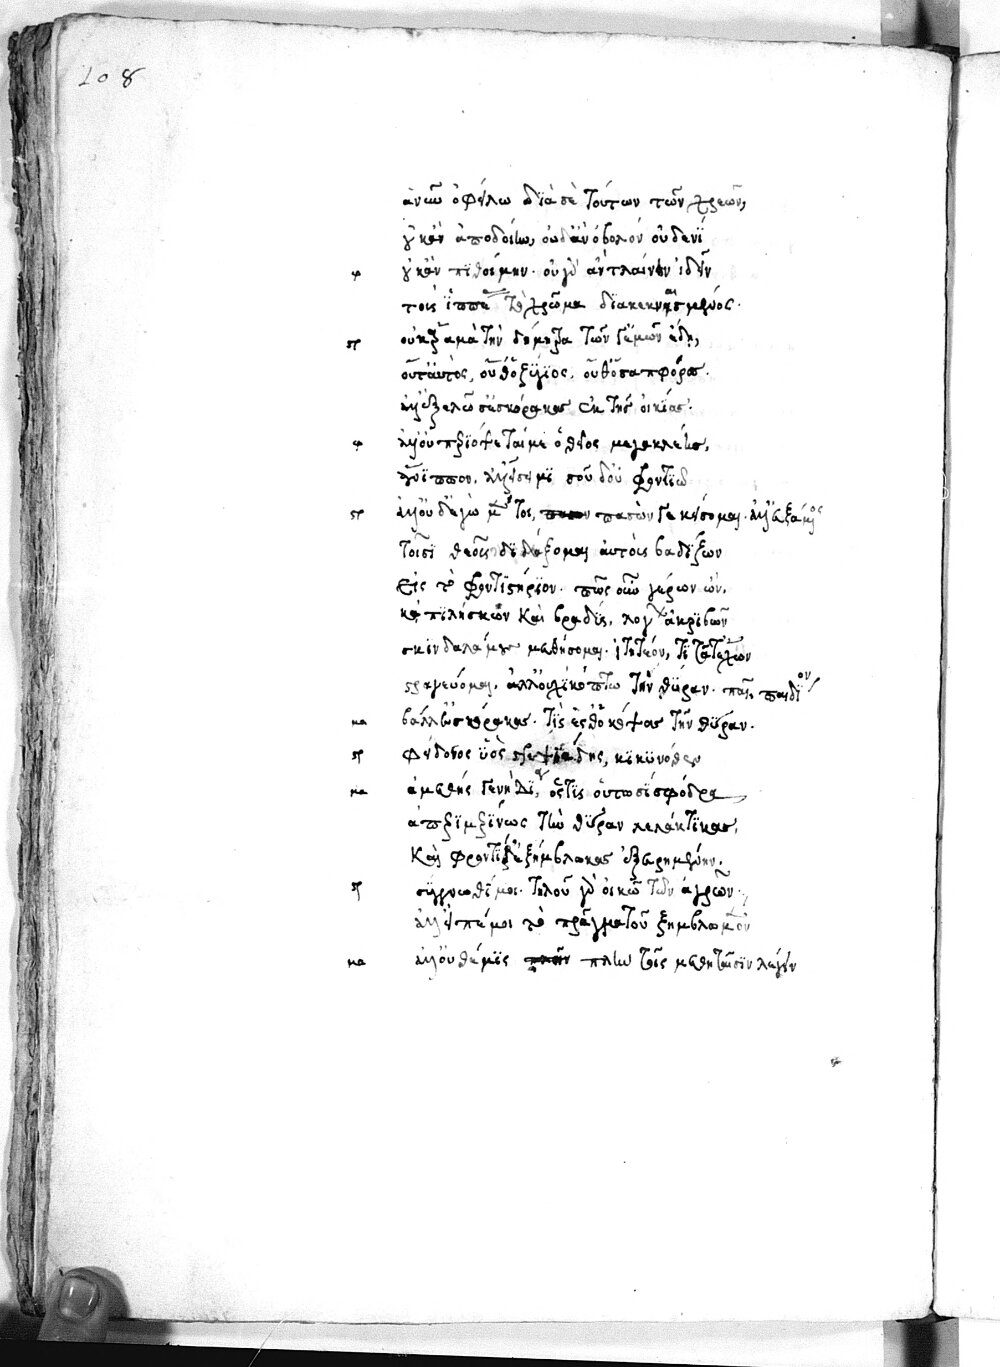 108
ἣν οὖν ὀφείλω διά σε τούτων τῶν χρεῶν,
οὐκ ἂν ἀποδοίην, οὐδ' ἂν ὀβολὸν οὐδενί
φ οὐκ ἂν πιθοίμην· οὐ γὰρ ἂν τλαίην ἰδεῖν
τοὺς ἱππέας τὸ χρῶμα διακεκναισμένος·
στρ οὐκ ἄρα μὰ τὴν δήμητρα τῶν γ' ἐμῶν ἔδει,
οὔτ' αὐτὸς, οὔθ' ὁ ζύγιος, οὔθ' ὁ σαπφόρας·
ἀλλ' ἐξελῶ σ' ἐς κόρακας ἐκ τῆς οἰκίας·
φ ἀλλ' οὐ περιόψεταί με ὁ θεῖος μεγακλέης,
ἄνιππον, ἀλλ' εἴσειμι σοῦ δ' οὐ φροντιῶ
στρ ἀλλ' οὐδ' ἐγὼ μέντοι, πεσών γε κείσομαι· ἀλλ' εὐξάμενος
τοῖσι θεοῖς διδάξομαι αὐτὸς βαδίζων
εἰς τὸ φροντιστήριον· πῶς οὖν γέρων ὢν,
κἀπιλήσμων καὶ βραδὺς, λόγων ἀκριβῶν
σκινδαλάμους μαθήσομαι· ἰτητέον, τί ταῦτ' ἔχων
στραγγεύομαι, ἀλλ' οὐχὶ κόπτω τὴν θύραν· παῖ, παιδίον
μα βάλλ' ἐς κόρακας· τίς ἐσθ' ὁ κόψας τὴν θύραν·
στρ φείδωνος υἱὸς στρεψιάδης, κικυννόθεν
μα ἀμαθής γε νὴ Δί', ὅστις οὑτωσὶ σφόδρα
ἀπεριμερίμνως τὴν θύραν λελάκτικας,
καὶ φροντίδ' ἐξήμβλωκας ἐξευρημένην·
στρ σύγγνωθί μοι· τηλοῦ γὰρ οἰκῶ τῶν ἀγρῶν·
ἀλλ' εἰπέ μοι τὸ πρᾶγμα τοὐξημβλωμένον
μα ἀλλ' οὐ θέμις πλὴν τοῖς μαθηταῖσιν λέγειν